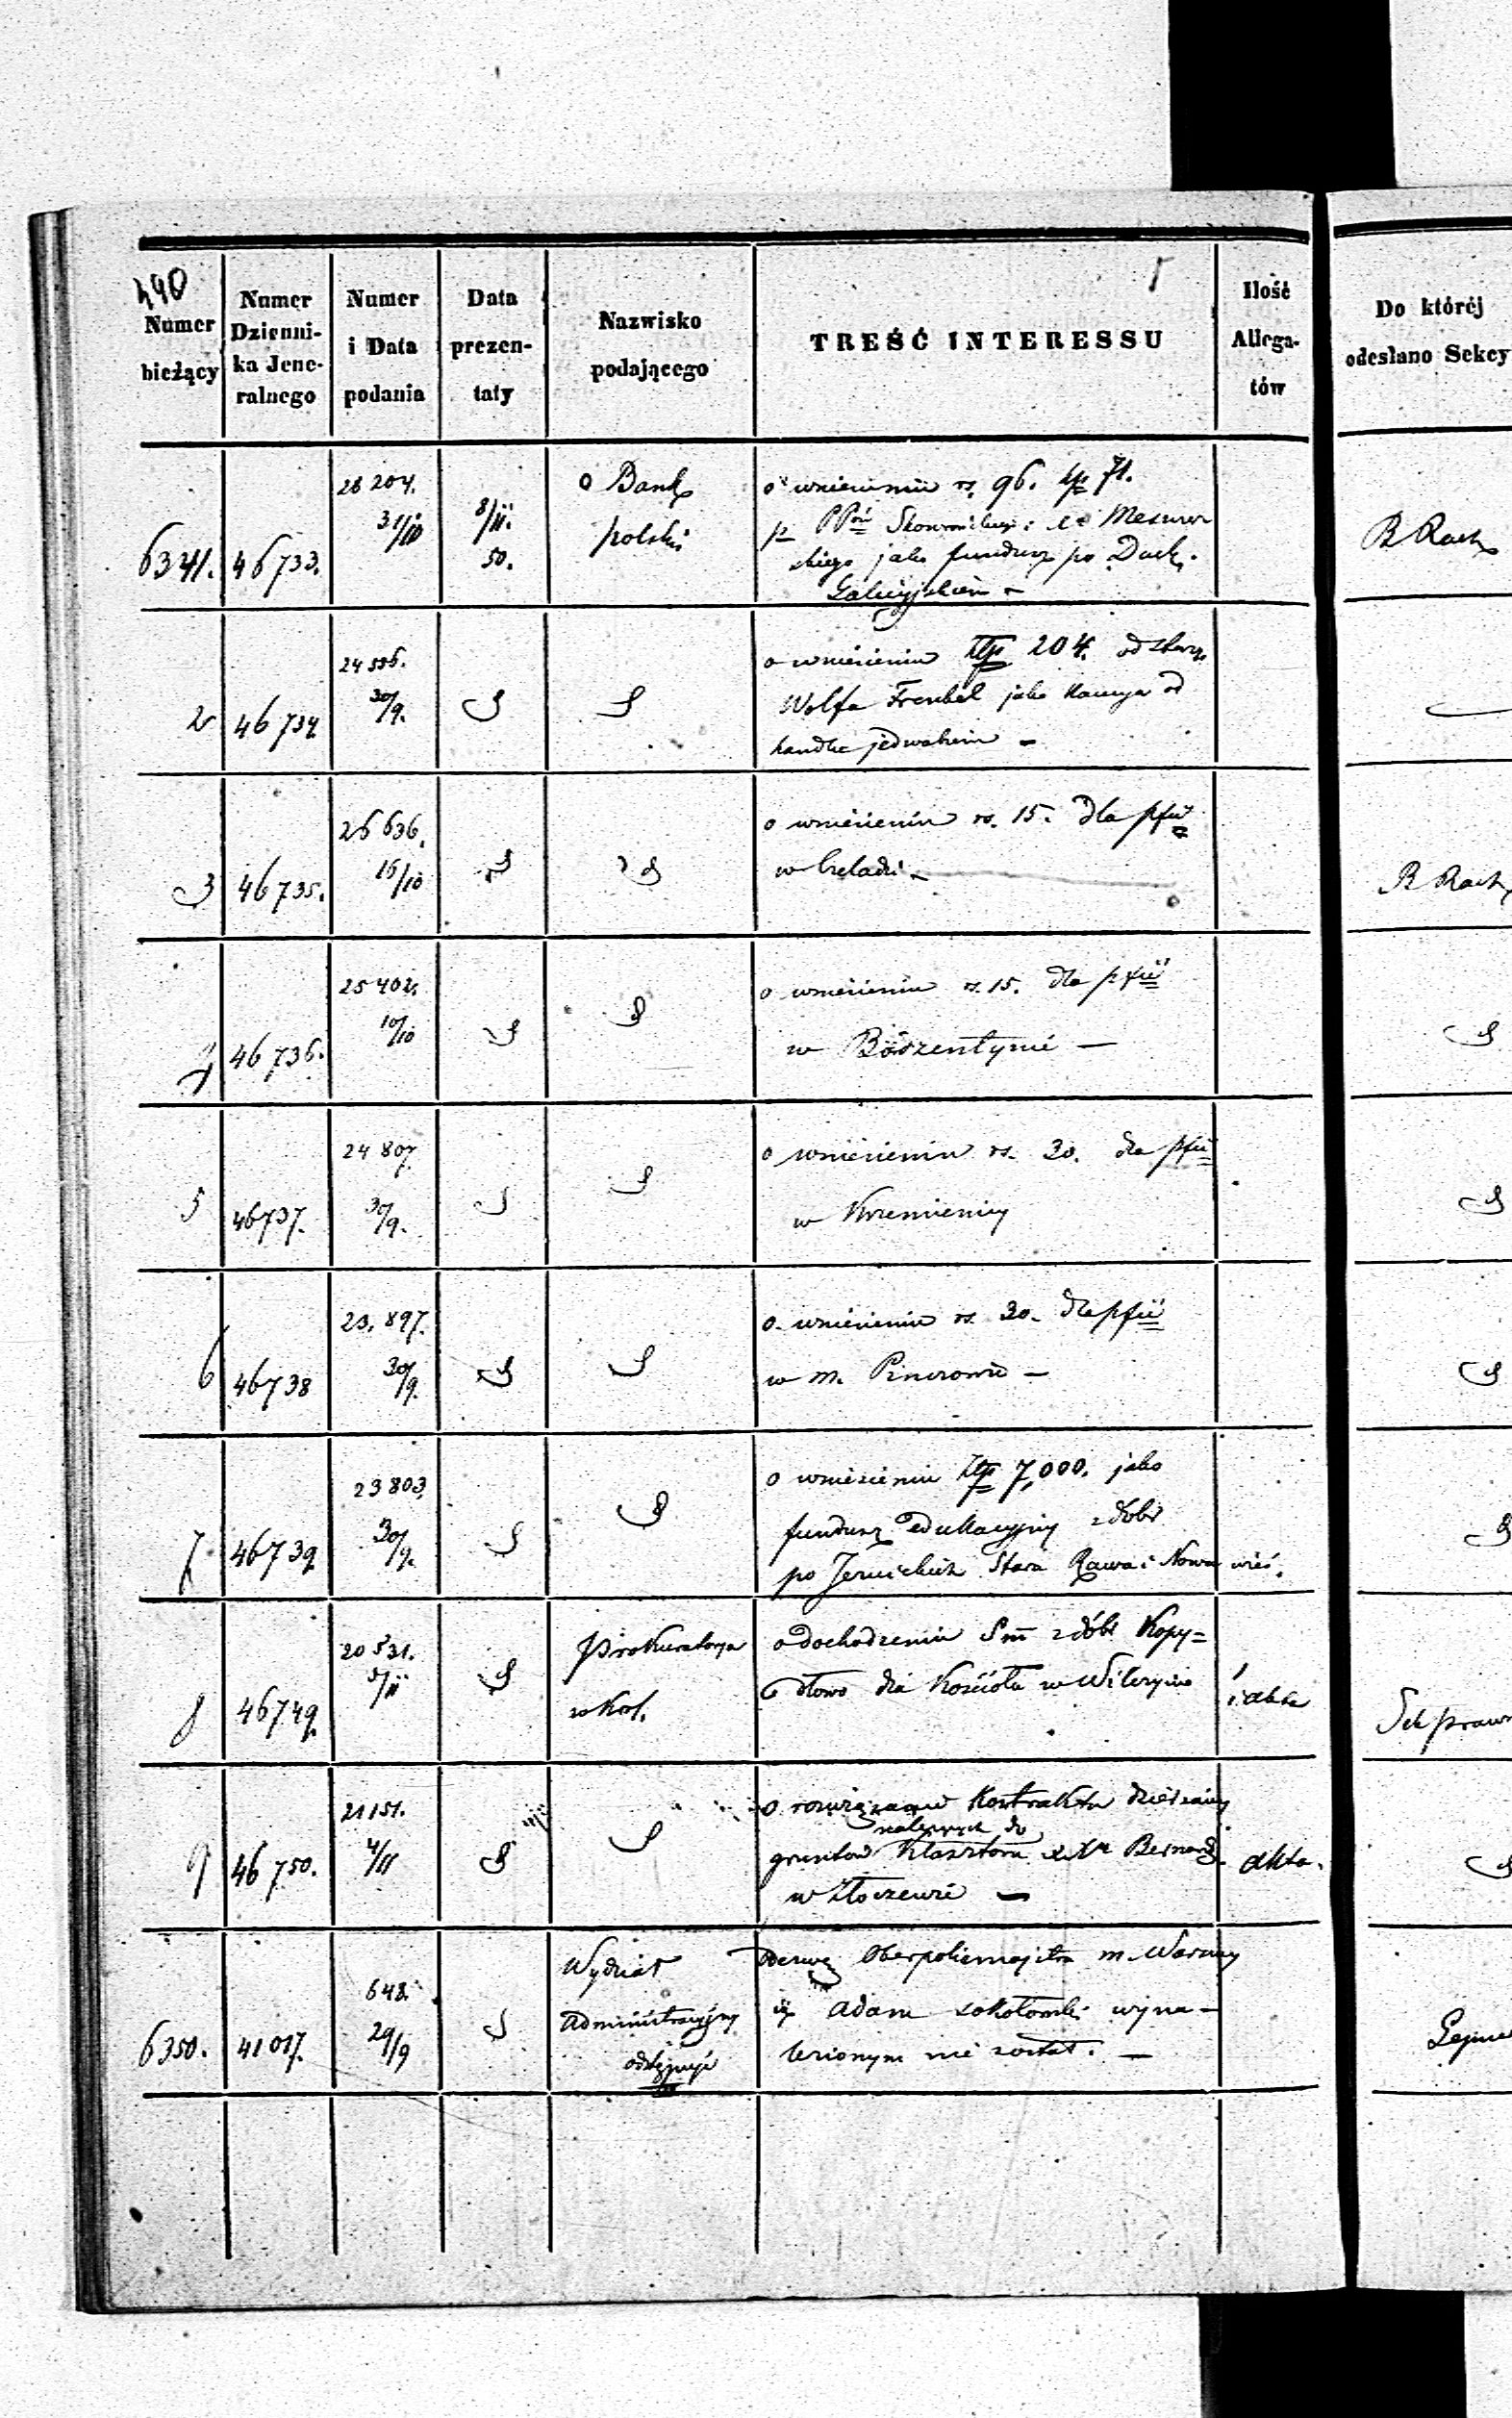 490
Numer bieżący
Numer Dzienni- ka Jene- ralnego
Numer i Data podania
Data prezen- taty
Nazwisko podającego
TREŚĆ INTERESSU
Ilość Allega- tów
Do którój odesłano Sekcy
6341. 46733. 28 204. 31/10 8/11. 50. Bank polski
o wniesieniu rs. 96. kp 71.
jako fundusz po Duch.
Galicyjskiem
R Rach
2 46734 30/9.
o wniesieniu Złp 204. od starz.
Wolfa Frenkel jako kaucya od
handlu jedwabiem
3 46735. 26 636. 16/10
o wniesieniu rs. 15. dla pfii
w Czeladzi
R Rach
4 46736. 25 402. 10/10
o wniesieniu rs. 15. dla pfii
w Bodzentynie —
5 46737. 24 807. 30/9.
o wniesieniu rs. 30. dla pfii
w Krzemienicy
6 46738 23,897. 30/9.
o wniesieniu rs. 30. dla pfii
w m. Pinczowie —
7 46739 23803. 30/9.
o wniesieniu Złp 7,000. jako
fundusz edukacyjny z dóbr
po Jezuickich Stara Rawa i Nowa wieś.
8 46749. 20 531. 5/11 Prokuratorya w Król.
o dochodzeniu Sm z dóbr Kopy=
dłowo dla Kościoła w Wilczynie
1. akta
Sek prawn
9 46750. 21151. 4/11
o rozwiązanie Kontraktu dzierżawy
należących do
gruntów Klasztoru Bernard.
w Złoczewie —
akta.
6350. 41017. 648. 29/9 Wydział Administracyjny odstępuje
Oberpolicmajstra m. Warszawy
iż Adam Sokołowski wyna-
lezionym nie został. —